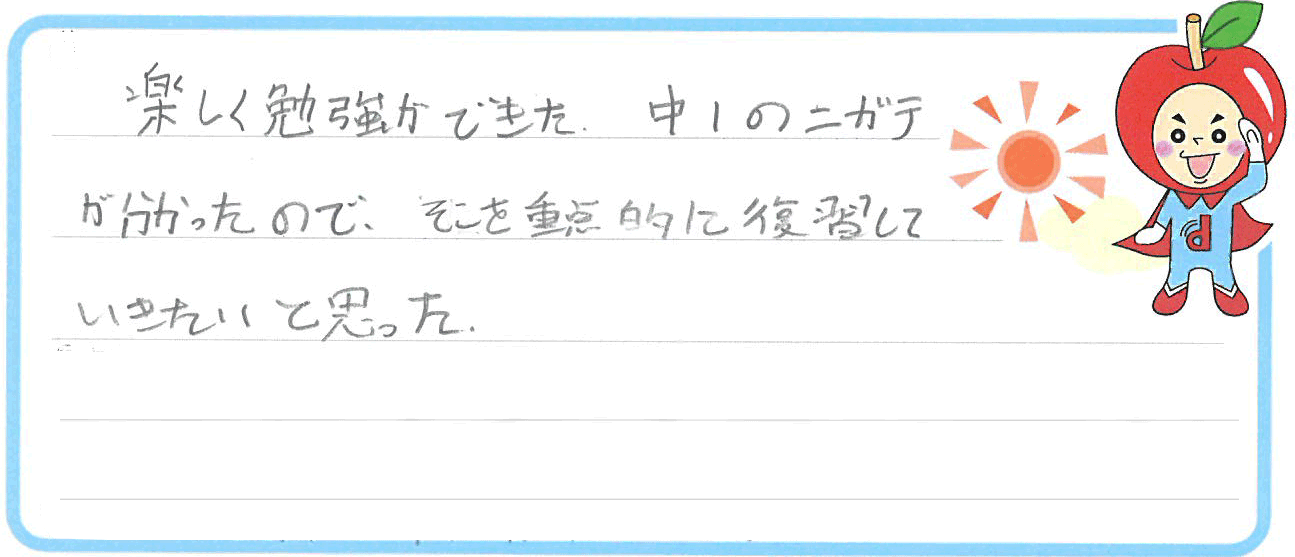 楽しく勉強ができた. 中1のニガテ
が分かったので、そこを重点的に復習して
いきたいと思った.
d